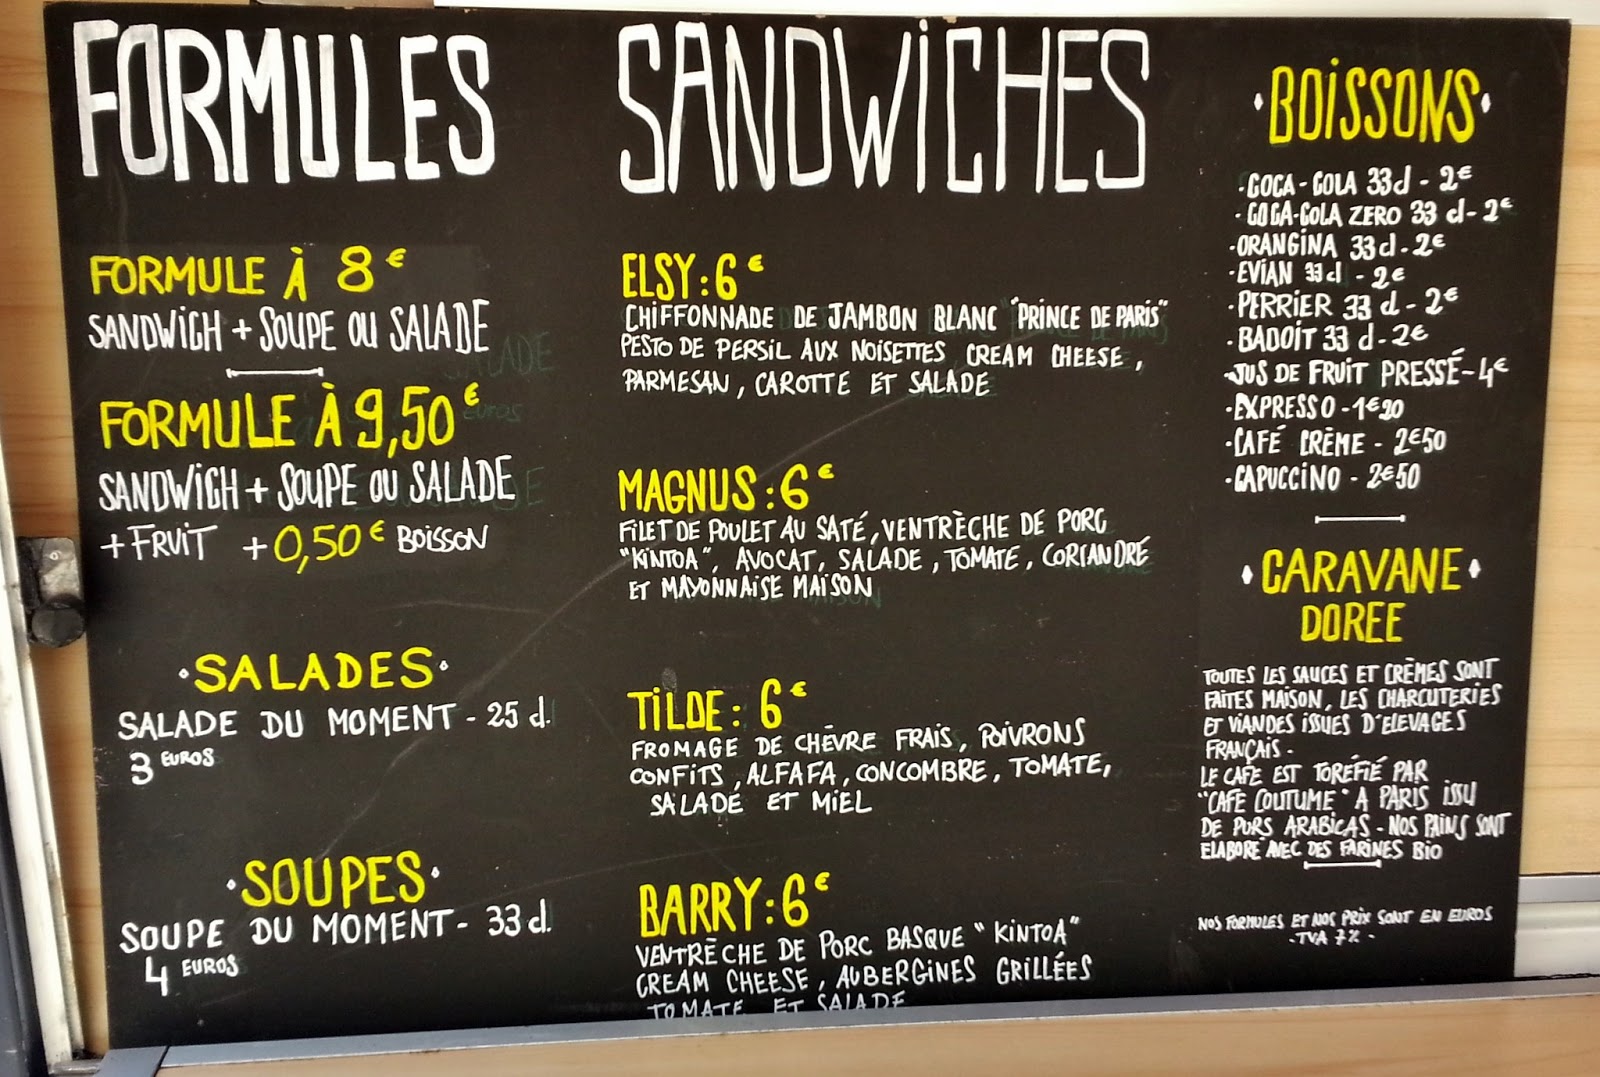 FORMULES
FORMULE À 8€
SANDWICH + SOUPE OU SALADE
FORMULE À 9,50€
SANDWICH + SOUPE OU SALADE
+ FRUIT + 0,50€ BOISSON
SALADES
SALADE DU MOMENT - 25 cl.
3 EUROS
SOUPES
SOUPE DU MOMENT - 33 cl.
4 EUROS
SANDWICHES
ELSY : 6€
CHIFFONNADE DE JAMBON BLANC "PRINCE DE PARIS"
PESTO DE PERSIL AUX NOISETTES CREAM CHEESE,
PARMESAN, CAROTTE ET SALADE
MAGNUS : 6€
FILET DE POULET AU SATÉ, VENTRÈCHE DE PORC
"KINTOA", AVOCAT, SALADE, TOMATE, CORIANDRE
ET MAYONNAISE MAISON
TILDE : 6€
FROMAGE DE CHÈVRE FRAIS, POIVRONS
CONFITS, ALFAFA, CONCOMBRE, TOMATE,
SALADE ET MIEL
BARRY : 6€
VENTRÈCHE DE PORC BASQUE "KINTOA"
CREAM CHEESE, AUBERGINES GRILLÉES
TOMATE ET SALADE
BOISSONS
· COCA-COLA 33cl - 2€
· COCA-COLA ZERO 33 cl - 2€
· ORANGINA 33cl - 2€
· EVIAN 33cl - 2€
· PERRIER 33 cl - 2€
· BADOIT 33 cl - 2€
· JUS DE FRUIT PRESSÉ - 4€
· EXPRESSO - 1€20
· CAFÉ CRÈME - 2€50
· CAPUCCINO - 2€50
CARAVANE
DOREE
TOUTES LES SAUCES ET CRÈMES SONT
FAITES MAISON, LES CHARCUTERIES
ET VIANDES ISSUES D'ELEVAGES
FRANÇAIS -
LE CAFE EST TORÉFIÉ PAR
"CAFE COUTUME" A PARIS ISSU
DE PURS ARABICAS - NOS PAINS SONT
ELABORÉ AVEC DES FARINES BIO
NOS FORMULES ET NOS PRIX SONT EN EUROS
- TVA 7% -